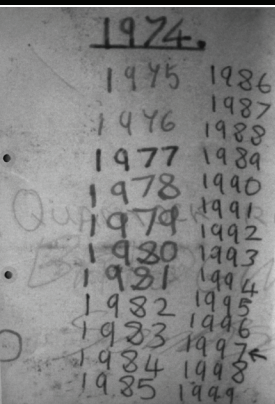 1974.
1975
1976
1977
1978
1979
1980
1981
1982
1983
1984
1985
1986
1987
1988
1989
1990
1991
1992
1993
1994
1995
1996
1997 ←
1998
1999